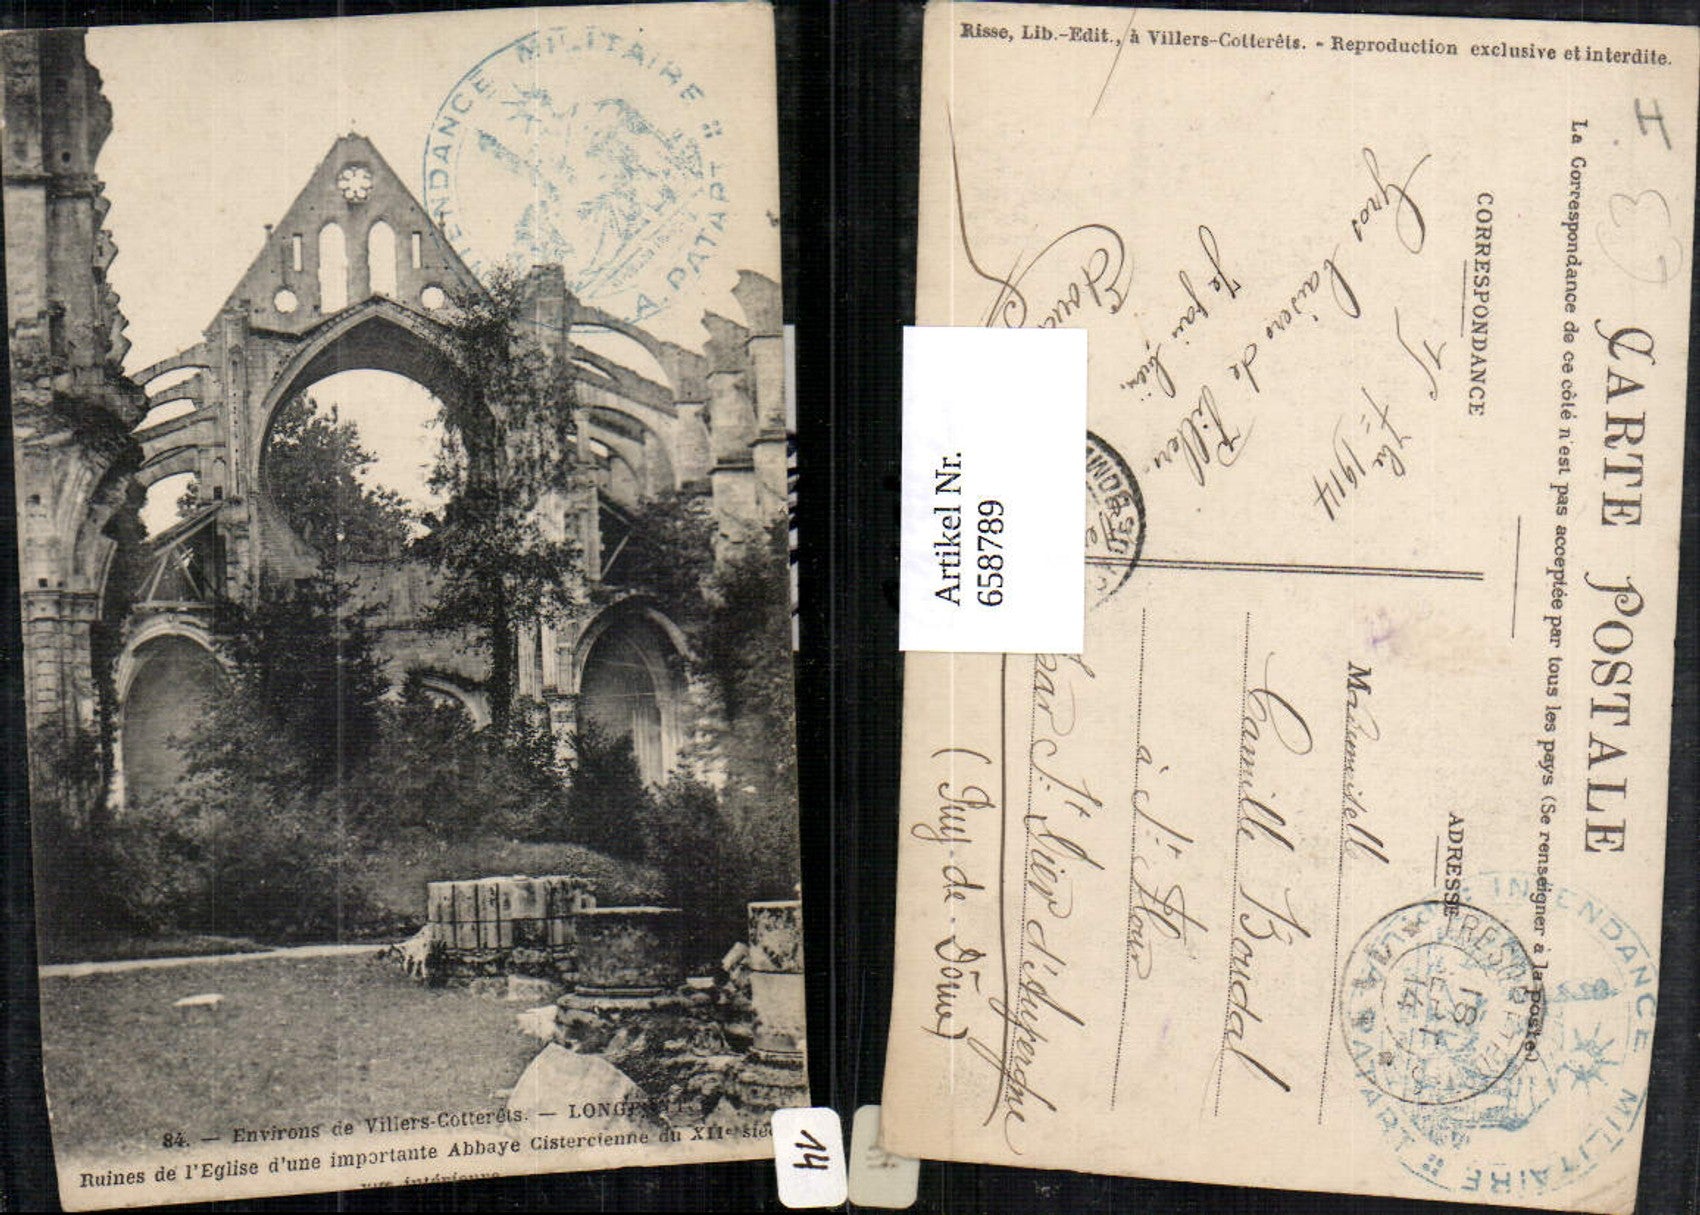 INTENDANCE MILITAIRE
A. PATART
84. — Environs de Villers-Cotterêts. — LONGPONT
Ruines de l'Eglise d'une importante Abbaye Cistercienne du XIIe siè
vue intérieure
14
Risse, Lib.-Edit., à Villers-Cotterêts. - Reproduction exclusive et interdite.
CARTE POSTALE
La Correspondance de ce côté n'est pas acceptée par tous les pays (Se renseigner à la poste)
CORRESPONDANCE
ADRESSE
I
1914
Gros baisers de Villers-
Je vais bien,
Mademoiselle
Camille Boudal
à St Flour
par St Dier d'Auvergne
(Puy-de-Dôme)
18
14
INTENDANCE MILITAIRE
A. PATART
Artikel Nr.
6588789